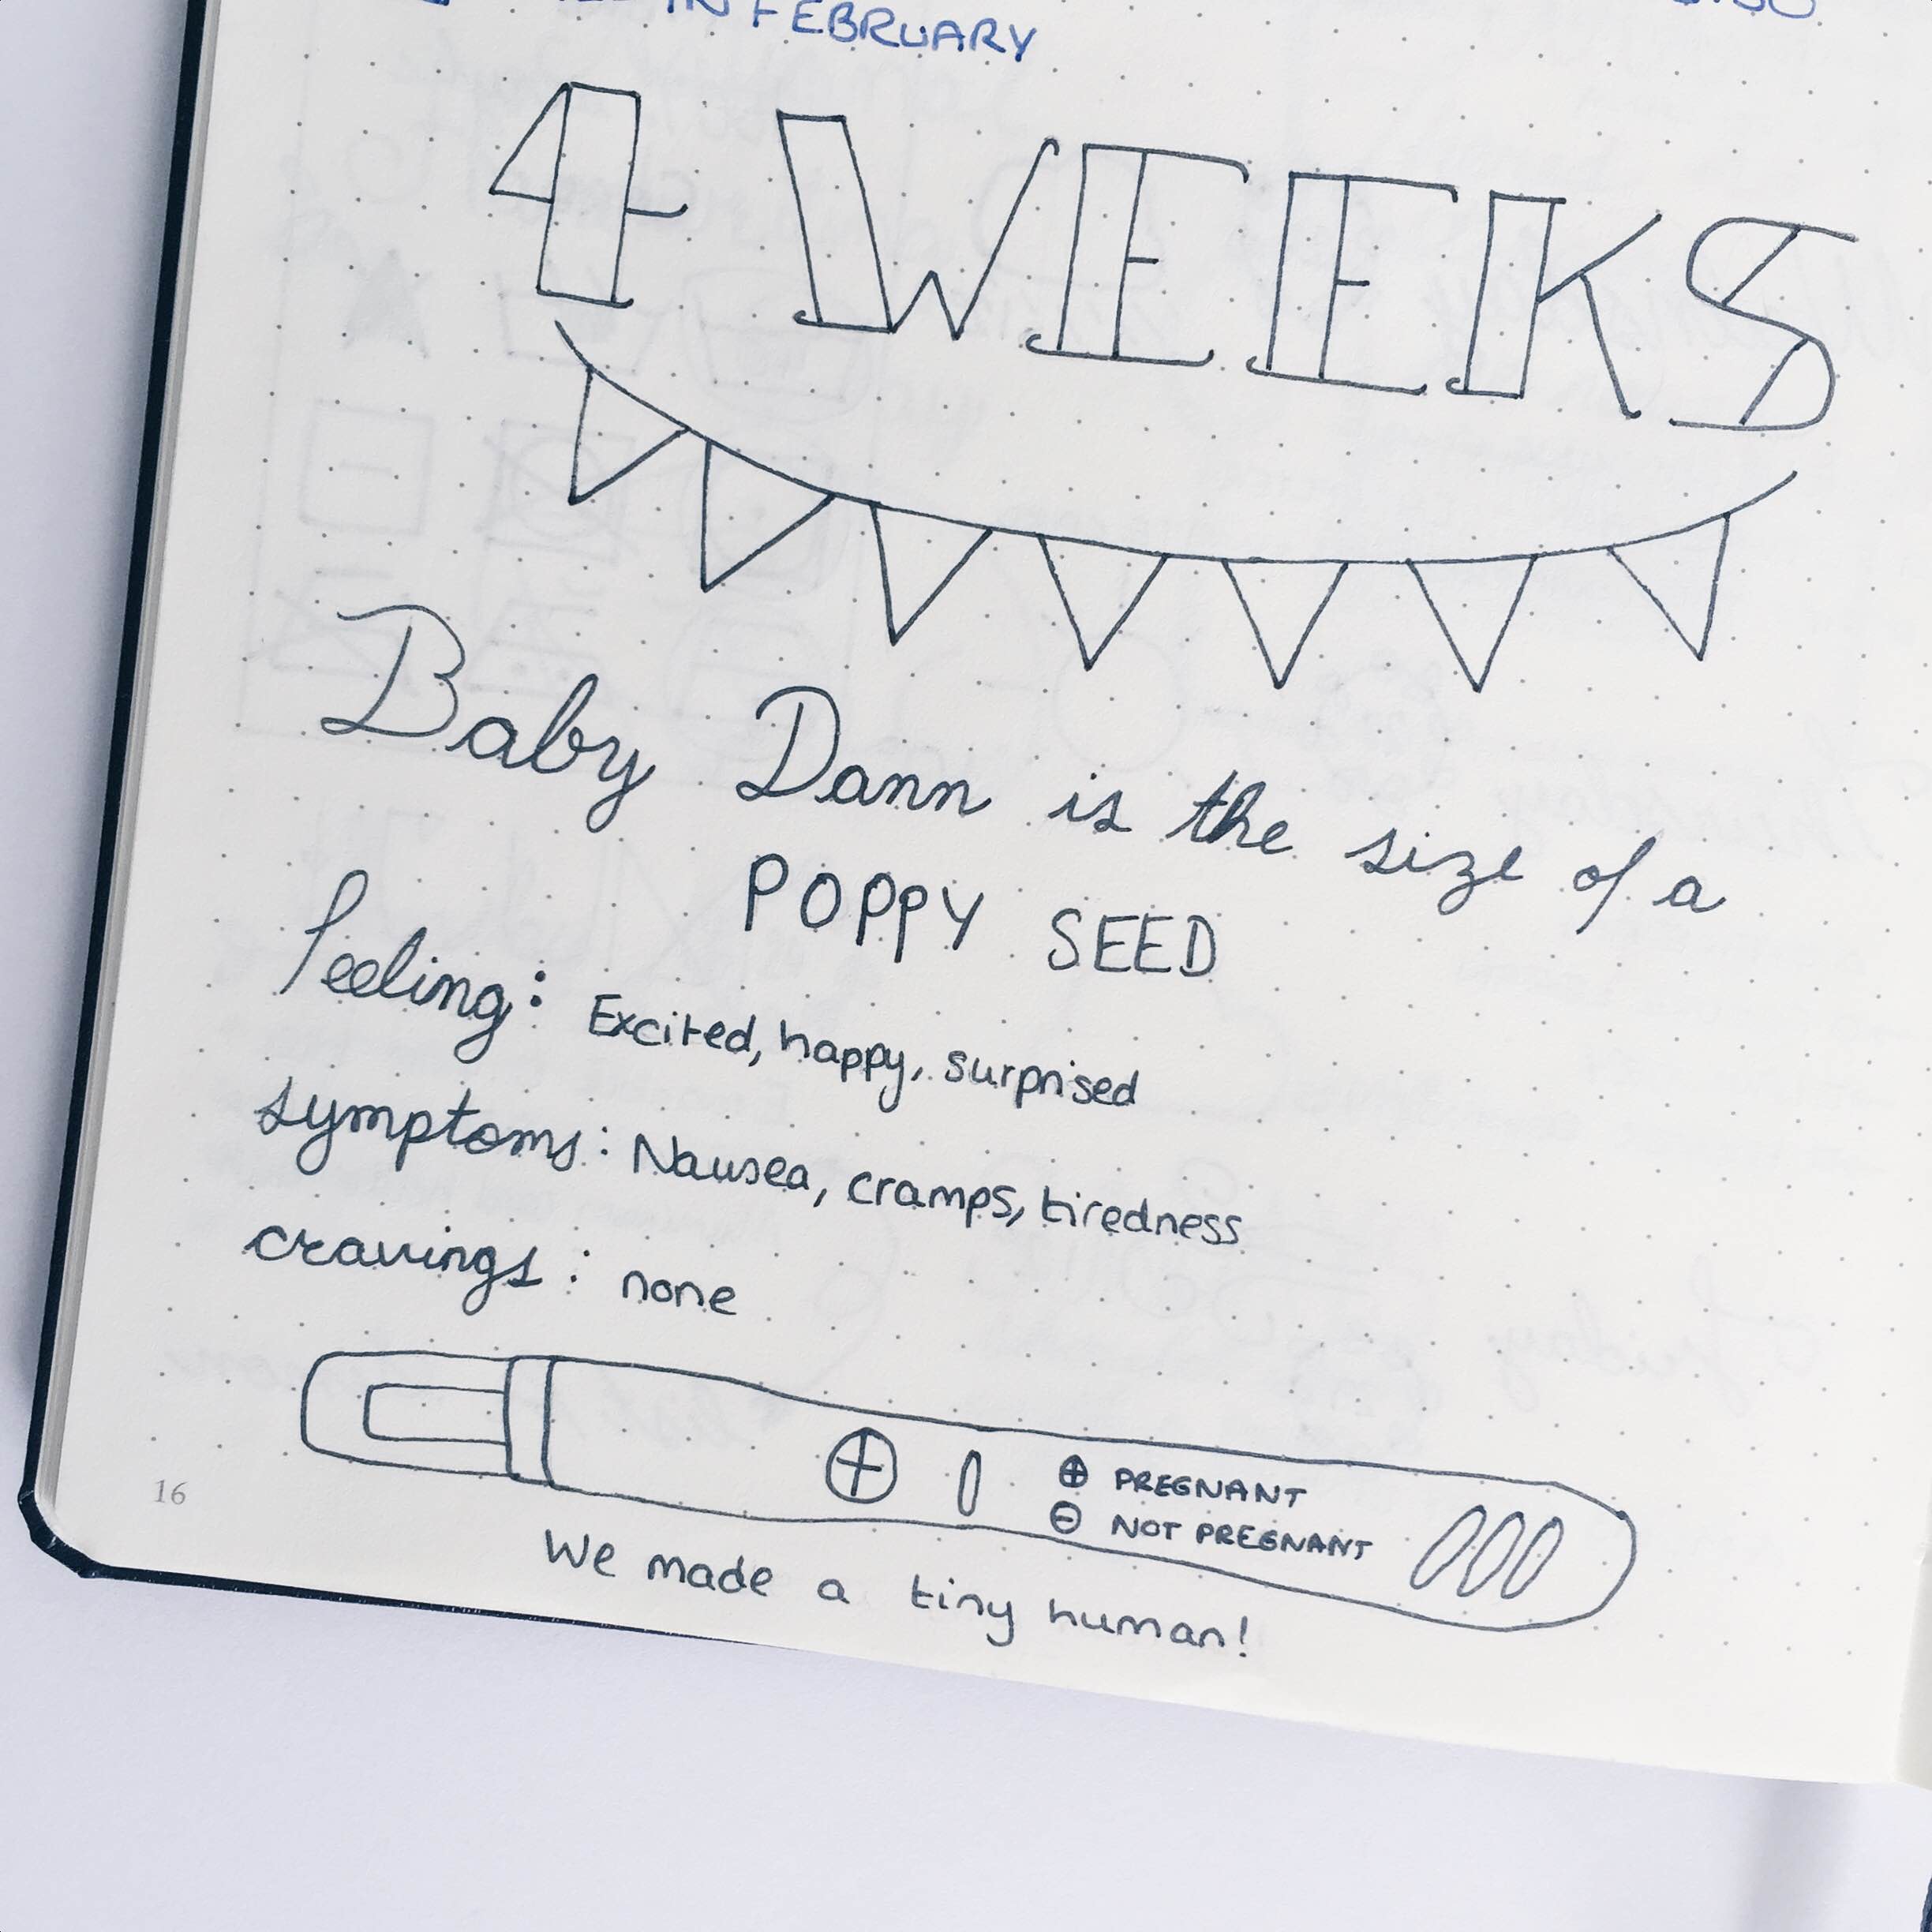 IN FEBRUARY
4 WEEKS
Baby Dann is the size of a
POPPY SEED
feeling: Excited, happy, surprised
symptoms: Nausea, cramps, tiredness
cravings: none
⊕ PREGNANT
⊖ NOT PREGNANT
16
We made a tiny human!